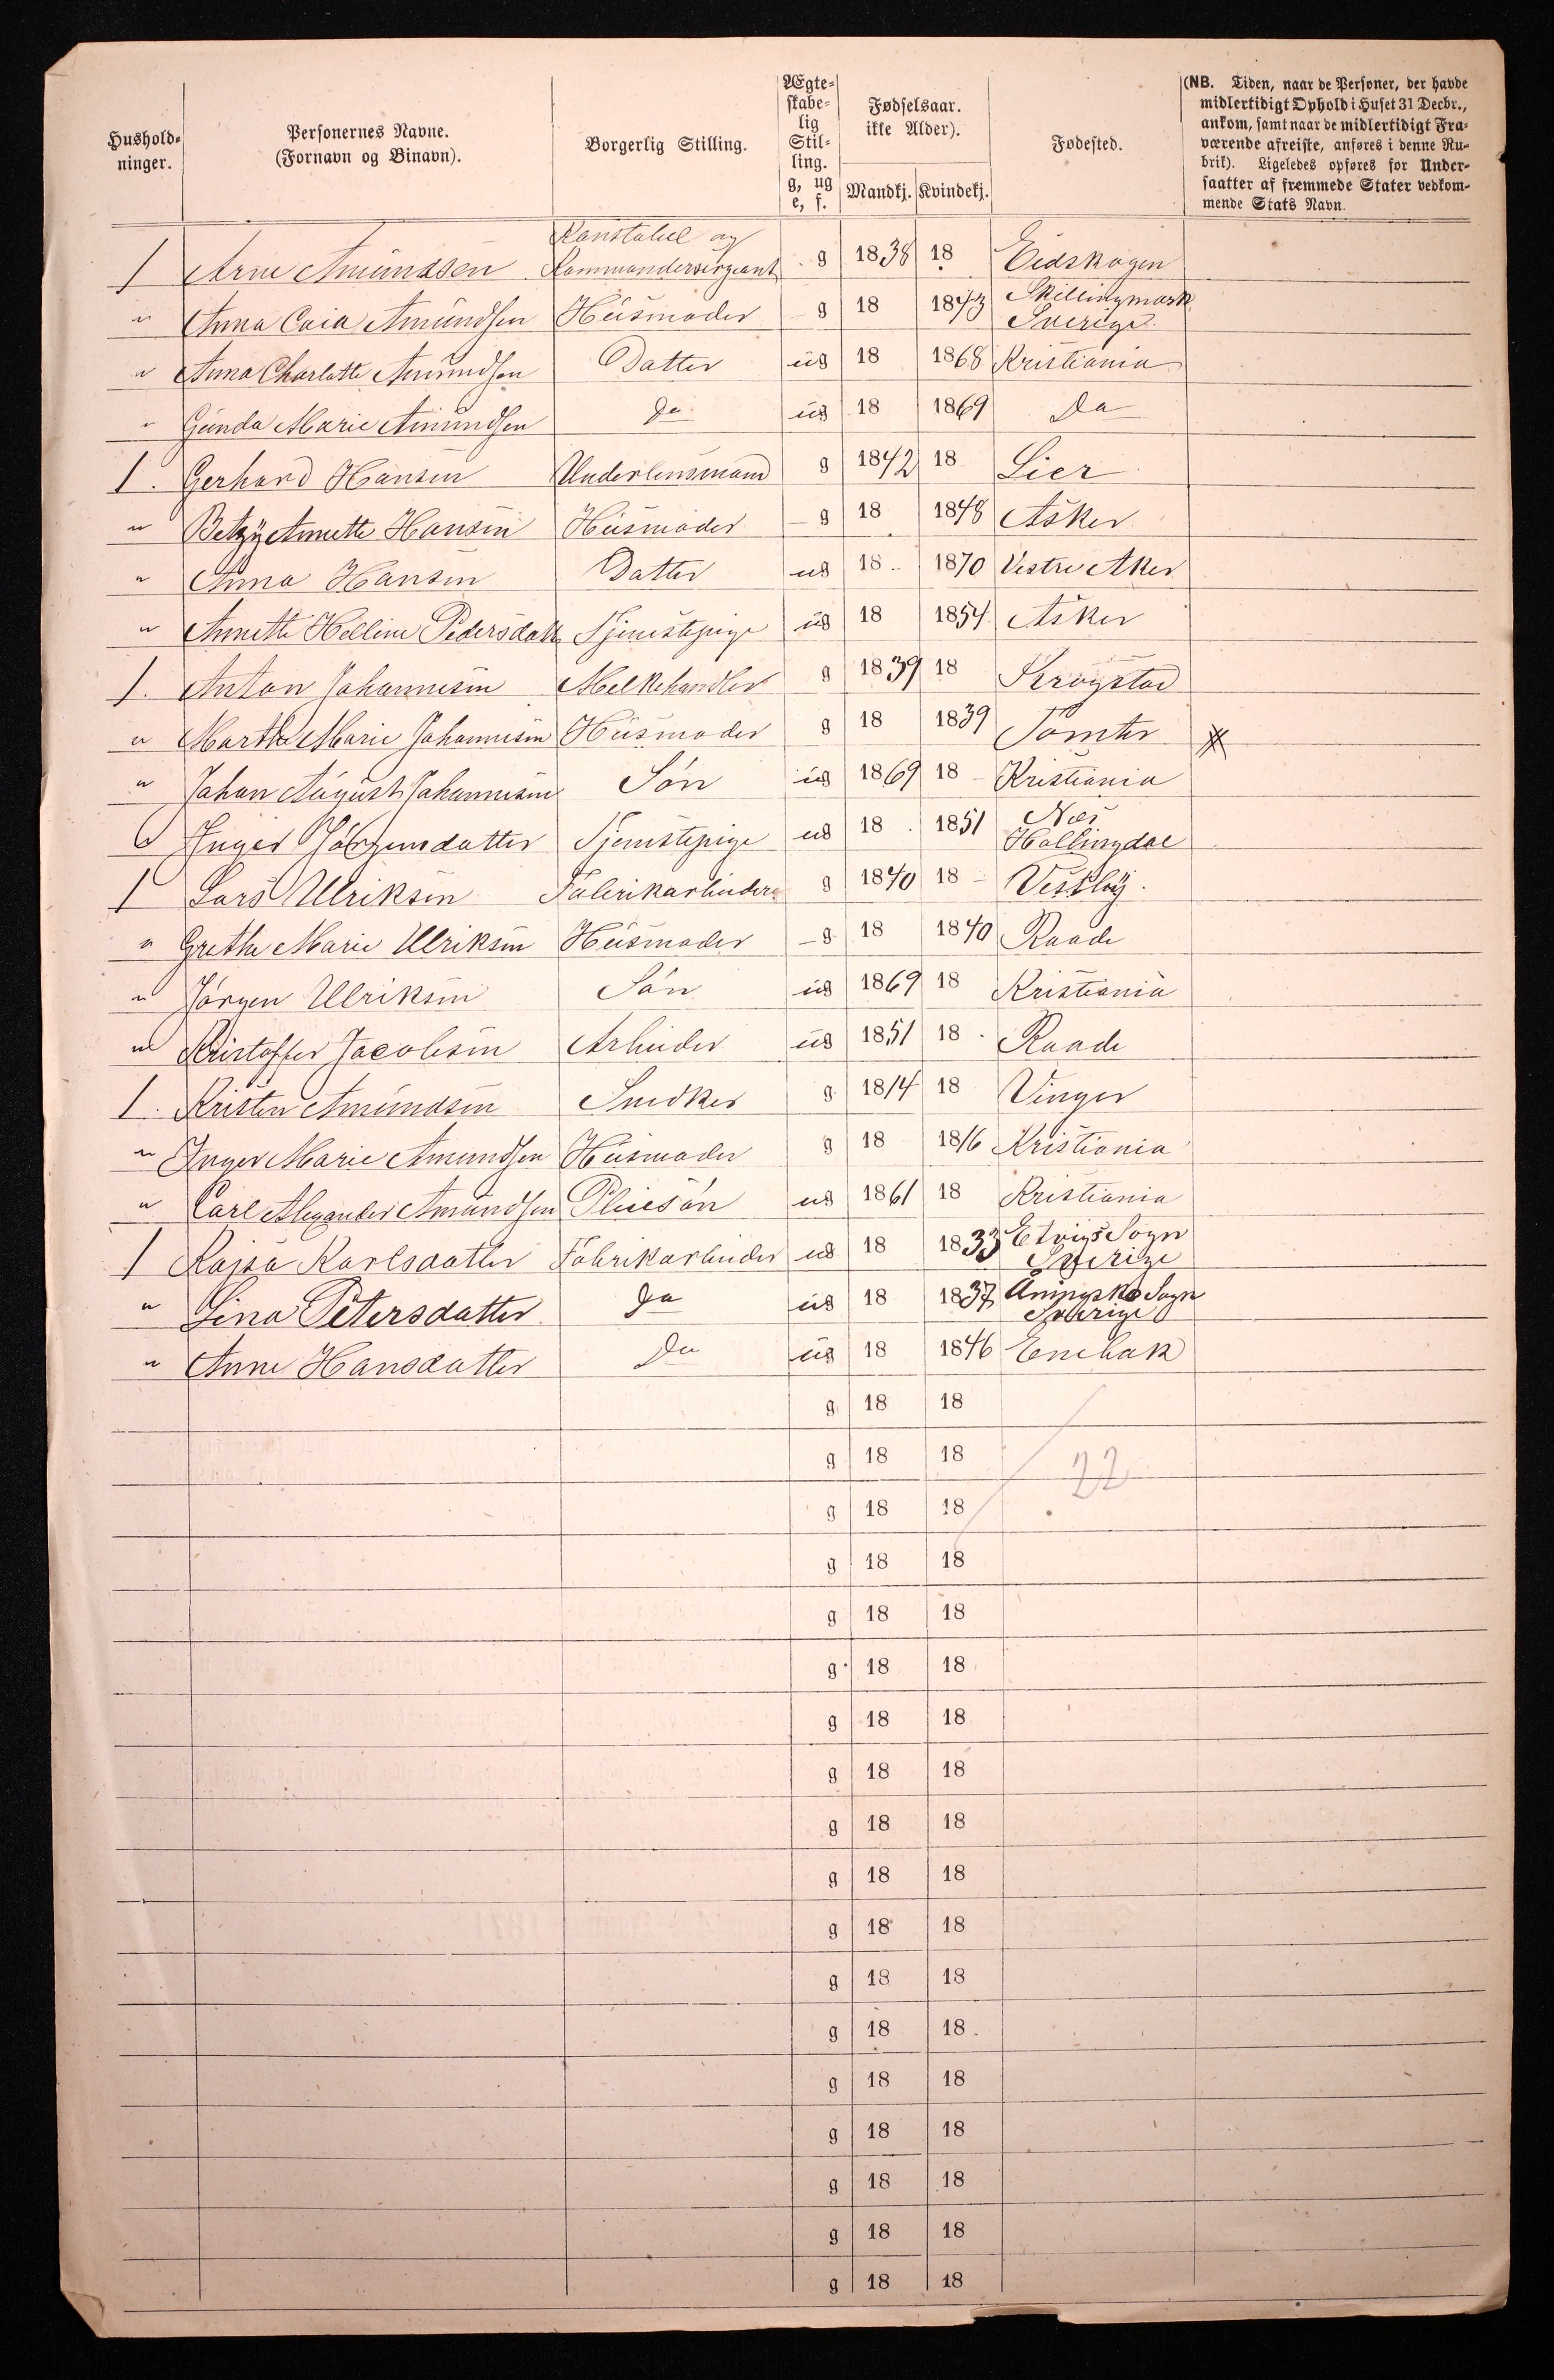 Hushold-
ninger.
Personernes Navne.
(Fornavn og Binavn).
Borgerlig Stilling.
Ægte-
skabe-
lig
Stil-
ling.
g, ug
e, f.
Fødselsaar.
ikke Alder).
Mandkj. Kvindekj.
Fødested.
(NB. Tiden, naar de Personer, der havde
midlertidigt Ophold i Huset 31 Decbr.,
ankom, samt naar de midlertidigt Fra-
værende afreiste, anføres i denne Ru-
brik). Ligeledes opføres for Under-
saatter af fremmede Stater vedkom-
mende Stats Navn.
Konstabel og
1 Arne Amundsen Kommandersergeant g 1838 18 Eidskogen
" Anna Caia Amundsen Husmoder g 18 1843 Skillingmark
Sverige.
" Anna Charlotte Amundsen Datter ug 18 1868 Kristiania
" Gunda Marie Amundsen Do ug 18 1869 Do
1. Gerhard Hansen Underlensmand g 1842 18 Lier
" Betzy Annette Hansen Husmoder g 18 1848 Asker
" Anna Hansen Datter ug 18 1870 Vestre Aker
" Annette Helline Pedersdatt Tjenestepige ug 18 1854 Asker
1. Anton Johannesen Melkehandler g 1839 18 Krogstad
" Marthe Marie Johannesen Husmoder g 18 1839 Tomter
" Johan August Johannesen Søn ug 1869 18 Kristiania
Nes
Inger Jørgensdatter Tjenestepige ug 18 1851 Hallingdal
1 Lars Ulriksen Fabrikarbeider g 1840 18 Vestby.
" Grethe Marie Ulriksen Husmoder g 18 1840 Raade
" Jørgen Ulriksen Søn ug 1869 18 Kristiania
" Kristoffer Jacobsen Arbeider ug 1851 18 Raade
1. Kristen Amundsen Snedker g 1814 18 Vinger
" Inger Marie Amundsen Husmoder g 18 1816 Kristiania
" Carl Alexander Amundsen Pleiesøn ug 1861 18 Kristiania
1 Kajsa Karlsdatter Fabrikarbeider ug 18 1833 Sogn
Sverige
" Lina Petersdatter Do ug 18 1837 Sogn
Sverige
" Anne Hansdatter Do ug 18 1846 Enebak
g 18 18
g 18 18 22
g 18 18
g 18 18
g 18 18
g 18 18
g 18 18
g 18 18
g 18 18
g 18 18
g 18 18
g 18 18
g 18 18
g 18 18
g 18 18
g 18 18
g 18 18
g 18 18